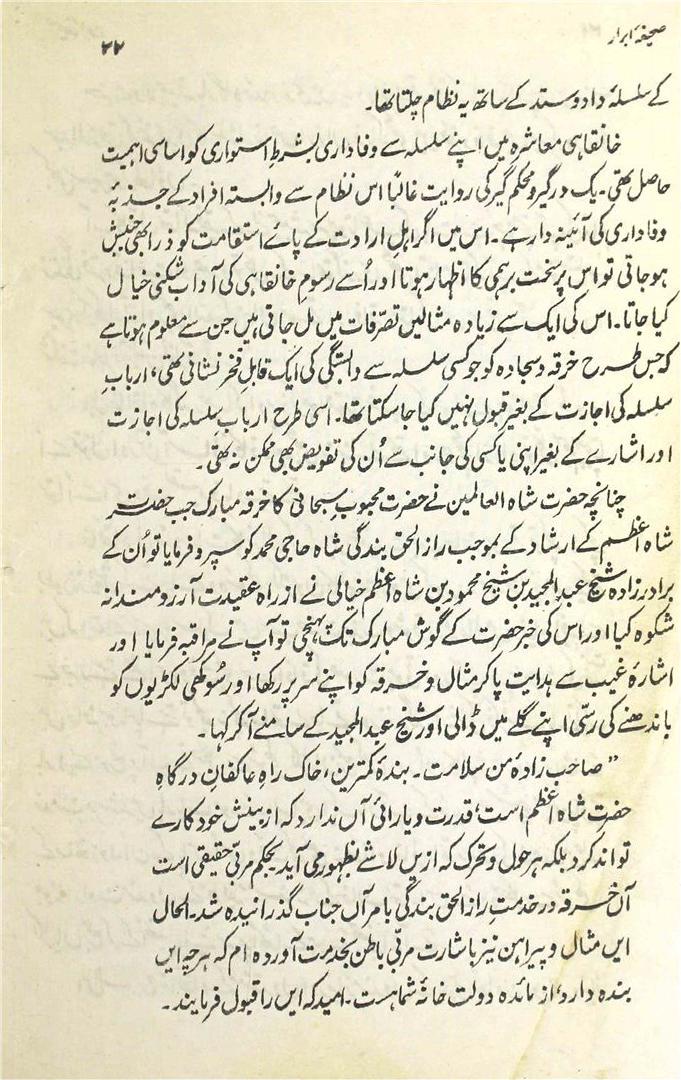 صحیفۂ ابرار
۲۲
کے سلسلۂ داد و ستد کے ساتھ یہ نظام چلتا تھا۔
خانقاہی معاشرہ میں اپنے سلسلہ سے وفاداری بشرطِ استواری کو اساسی اہمیت
حاصل تھی۔ یک در گیر و محکم گیر کی روایت غالباً اس نظام سے وابستہ افراد کے جذبۂ
وفاداری کی آئینہ دار ہے۔ اس میں اگر اہلِ ارادت کے پائے استقامت کو ذرا بھی جنبش
ہو جاتی تو اس پر سخت برہمی کا اظہار ہوتا اور اُسے رسومِ خانقاہی کی آداب شکنی خیال
کیا جاتا۔ اس کی ایک سے زیادہ مثالیں تصرّفات میں مل جاتی ہیں جن سے معلوم ہوتا ہے
کہ جس طرح خرقہ و سجادہ کو جو کسی سلسلہ سے وابستگی کی ایک قابلِ فخر نشانی تھی، اربابِ
سلسلہ کی اجازت کے بغیر قبول نہیں کیا جا سکتا تھا۔ اسی طرح اربابِ سلسلہ کی اجازت
اور اشارے کے بغیر اپنی یا کسی کی جانب سے اُن کی تفویض بھی ممکن نہ تھی۔
چنانچہ حضرت شاہ العالمین نے حضرت محبوبِ سبحانی کا خرقہ مبارک جب حضرت
شاہ اعظم کے ارشاد کے بموجب راز الحق بندگی شاہ حاجی محمد کو سپرد فرمایا تو اُن کے
برادر زادہ شیخ عبد المجید بن شیخ محمود بن شاہ اعظم خیالی نے از راہِ عقیدت آرزو مندانہ
شکوہ کیا اور اس کی خبر حضرت کے گوش مبارک تک پہنچی تو آپ نے مراقبہ فرمایا اور
اشارۂ غیب سے ہدایت پا کر مثال و خرقہ کو اپنے سر پر رکھا اور سُوکھی لکڑیوں کو
باندھنے کی رسّی اپنے گلے میں ڈالی اور شیخ عبد المجید کے سامنے آ کر کہا۔
” صاحب زادۂ من سلامت۔ بندۂ کمترین، خاک راہِ عاکفانِ درگاہِ
حضرت شاہ اعظم است، قدرت و یارائی آں ندارد کہ از بینش خود کارے
تواند کرد بلکہ ہر حول و تحرک کہ ازیں لاشے بظہور می آید بحکم مربّی حقیقی است
آں خرقہ در خدمتِ راز الحق بندگی بامر آں جناب گذرانیدہ شد۔ الحال
ایں مثال و پیراہن نیز باشارت مربّی باطن بخدمت آوردہ ام کہ ہر چہ ایں
بندہ دارد، از مائدہ دولت خانۂ شماست۔ امید کہ ایں را قبول فرمایند۔